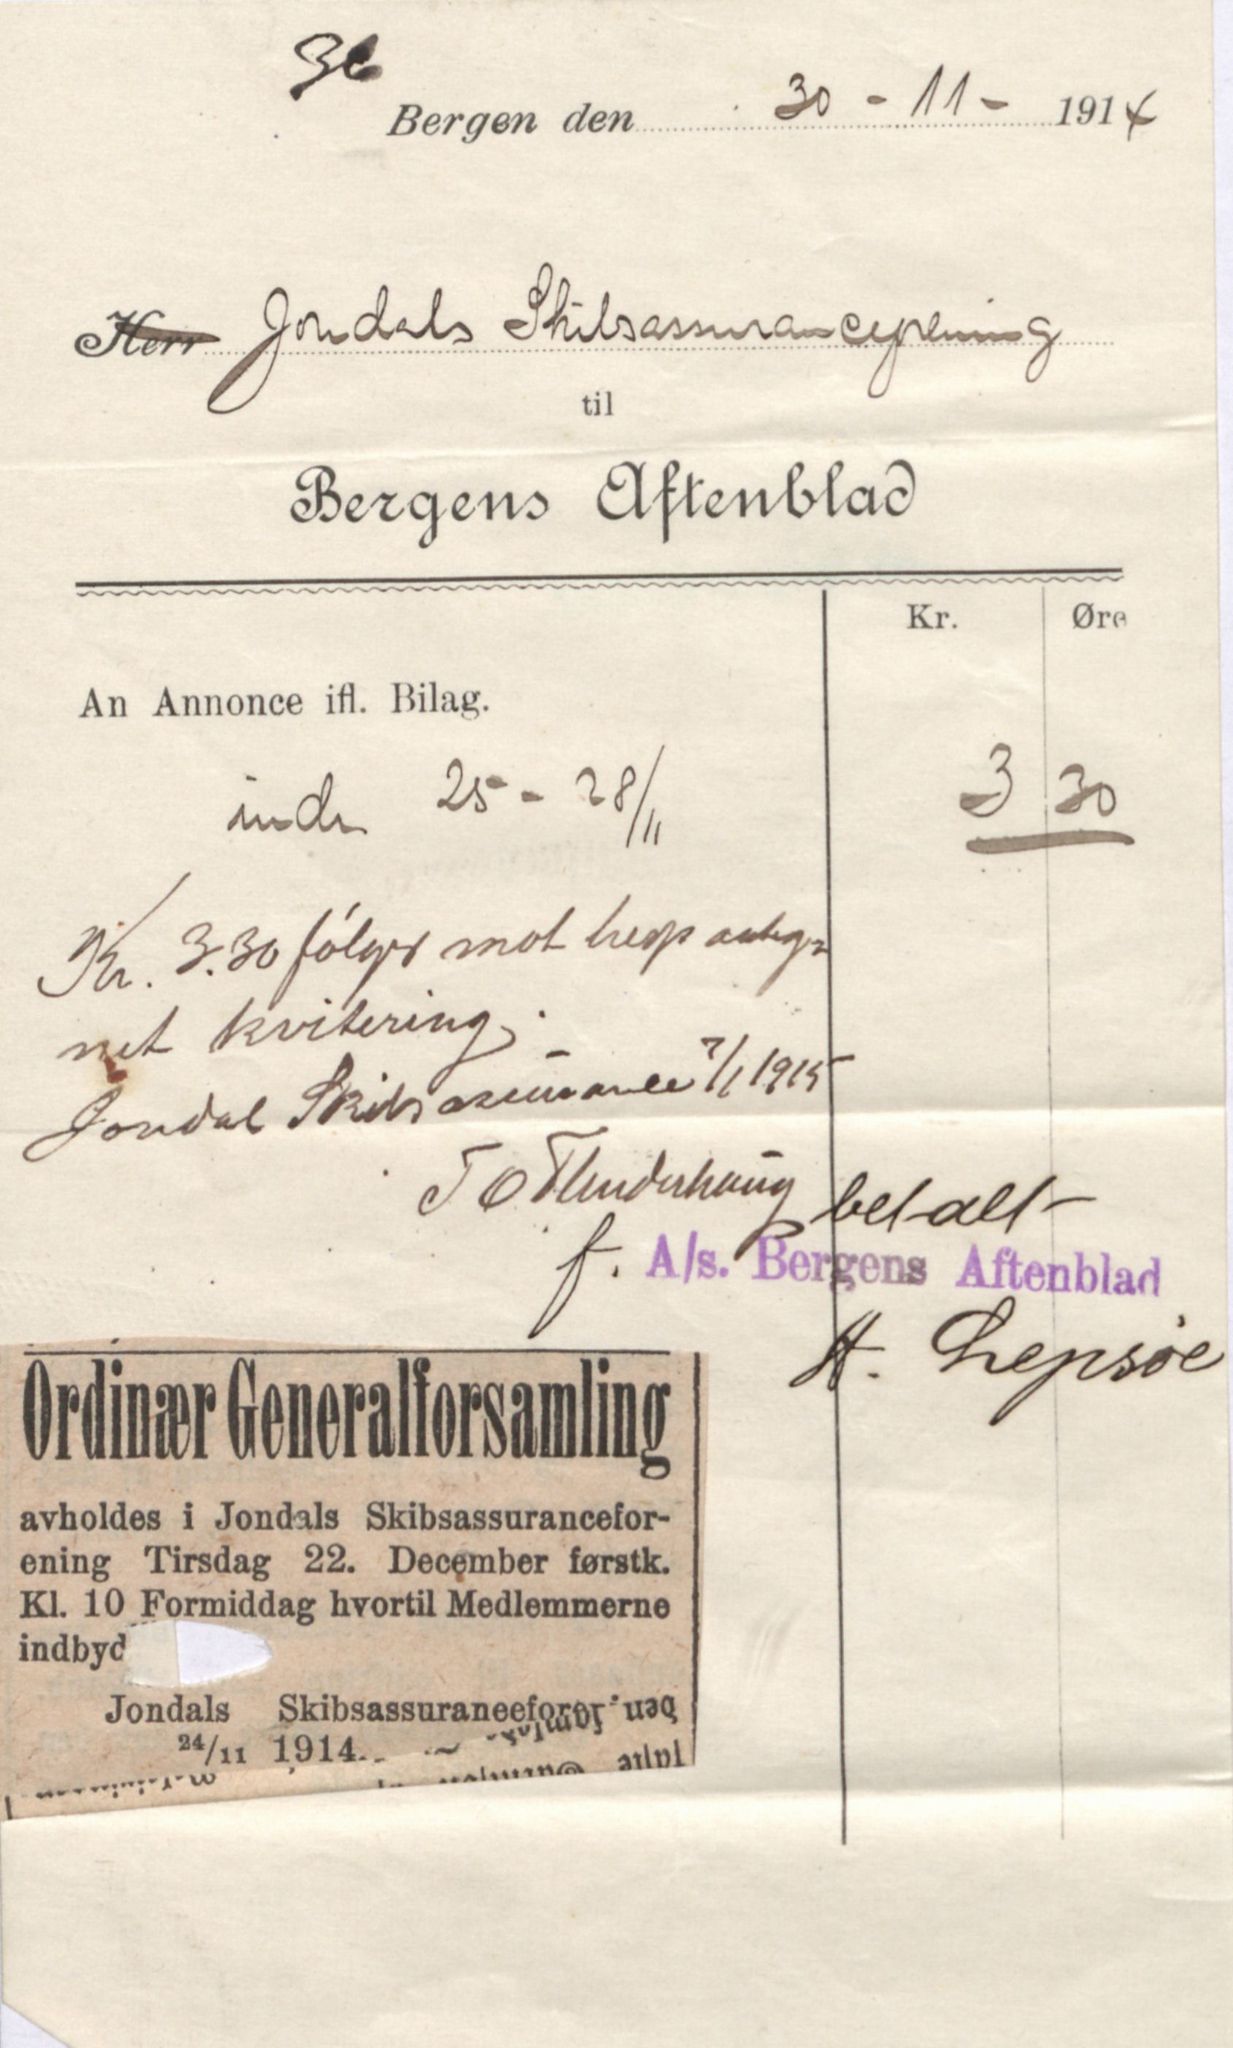 Bergen den 30 - 11 - 1914
Herr Jondals Skibsassuranceforening
til
Bergens Aftenblad
Kr. Øre
An Annonce ifl. Bilag.
indr 25 - 28/11 3 30
Kr. 3.30 følger mot hesp
net kvitering.
Jondal Skibsassurance 7/1 1915
T O betalt
f. A/s. Bergens Aftenblad
A. Lepsøe
Ordinær Generalforsamling
avholdes i Jondals Skibsassurancefor-
ening Tirsdag 22. December førstk.
Kl. 10 Formiddag hvortil Medlemmerne
indbyd
Jondals Skibsassuraneeforer
24/11 1914.